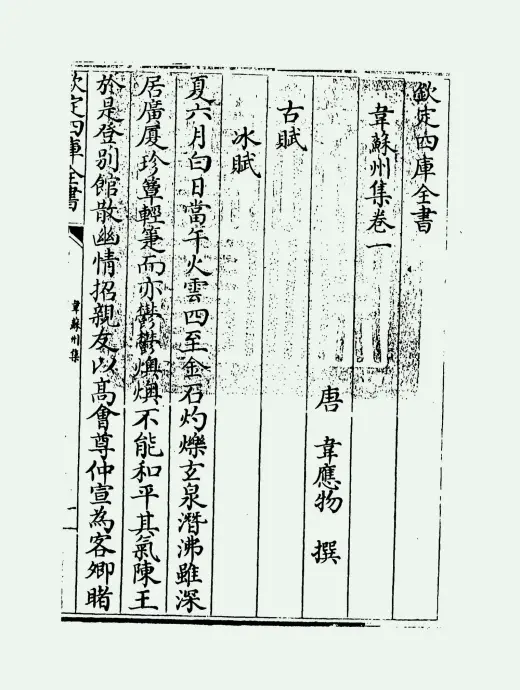 欽定四庫全書
韋蘇州集卷一
唐 韋應物 撰
古賦
冰賦
夏六月白日當午火雲四至金石灼爍玄泉潛沸雖深
居廣厦珍簟輕箑而亦鬱鬱燠燠不能和平其氣陳王
於是登別館散幽情招親友以高會尊仲宣為客卿睹
欽定四庫全書
韋蘇州集
一